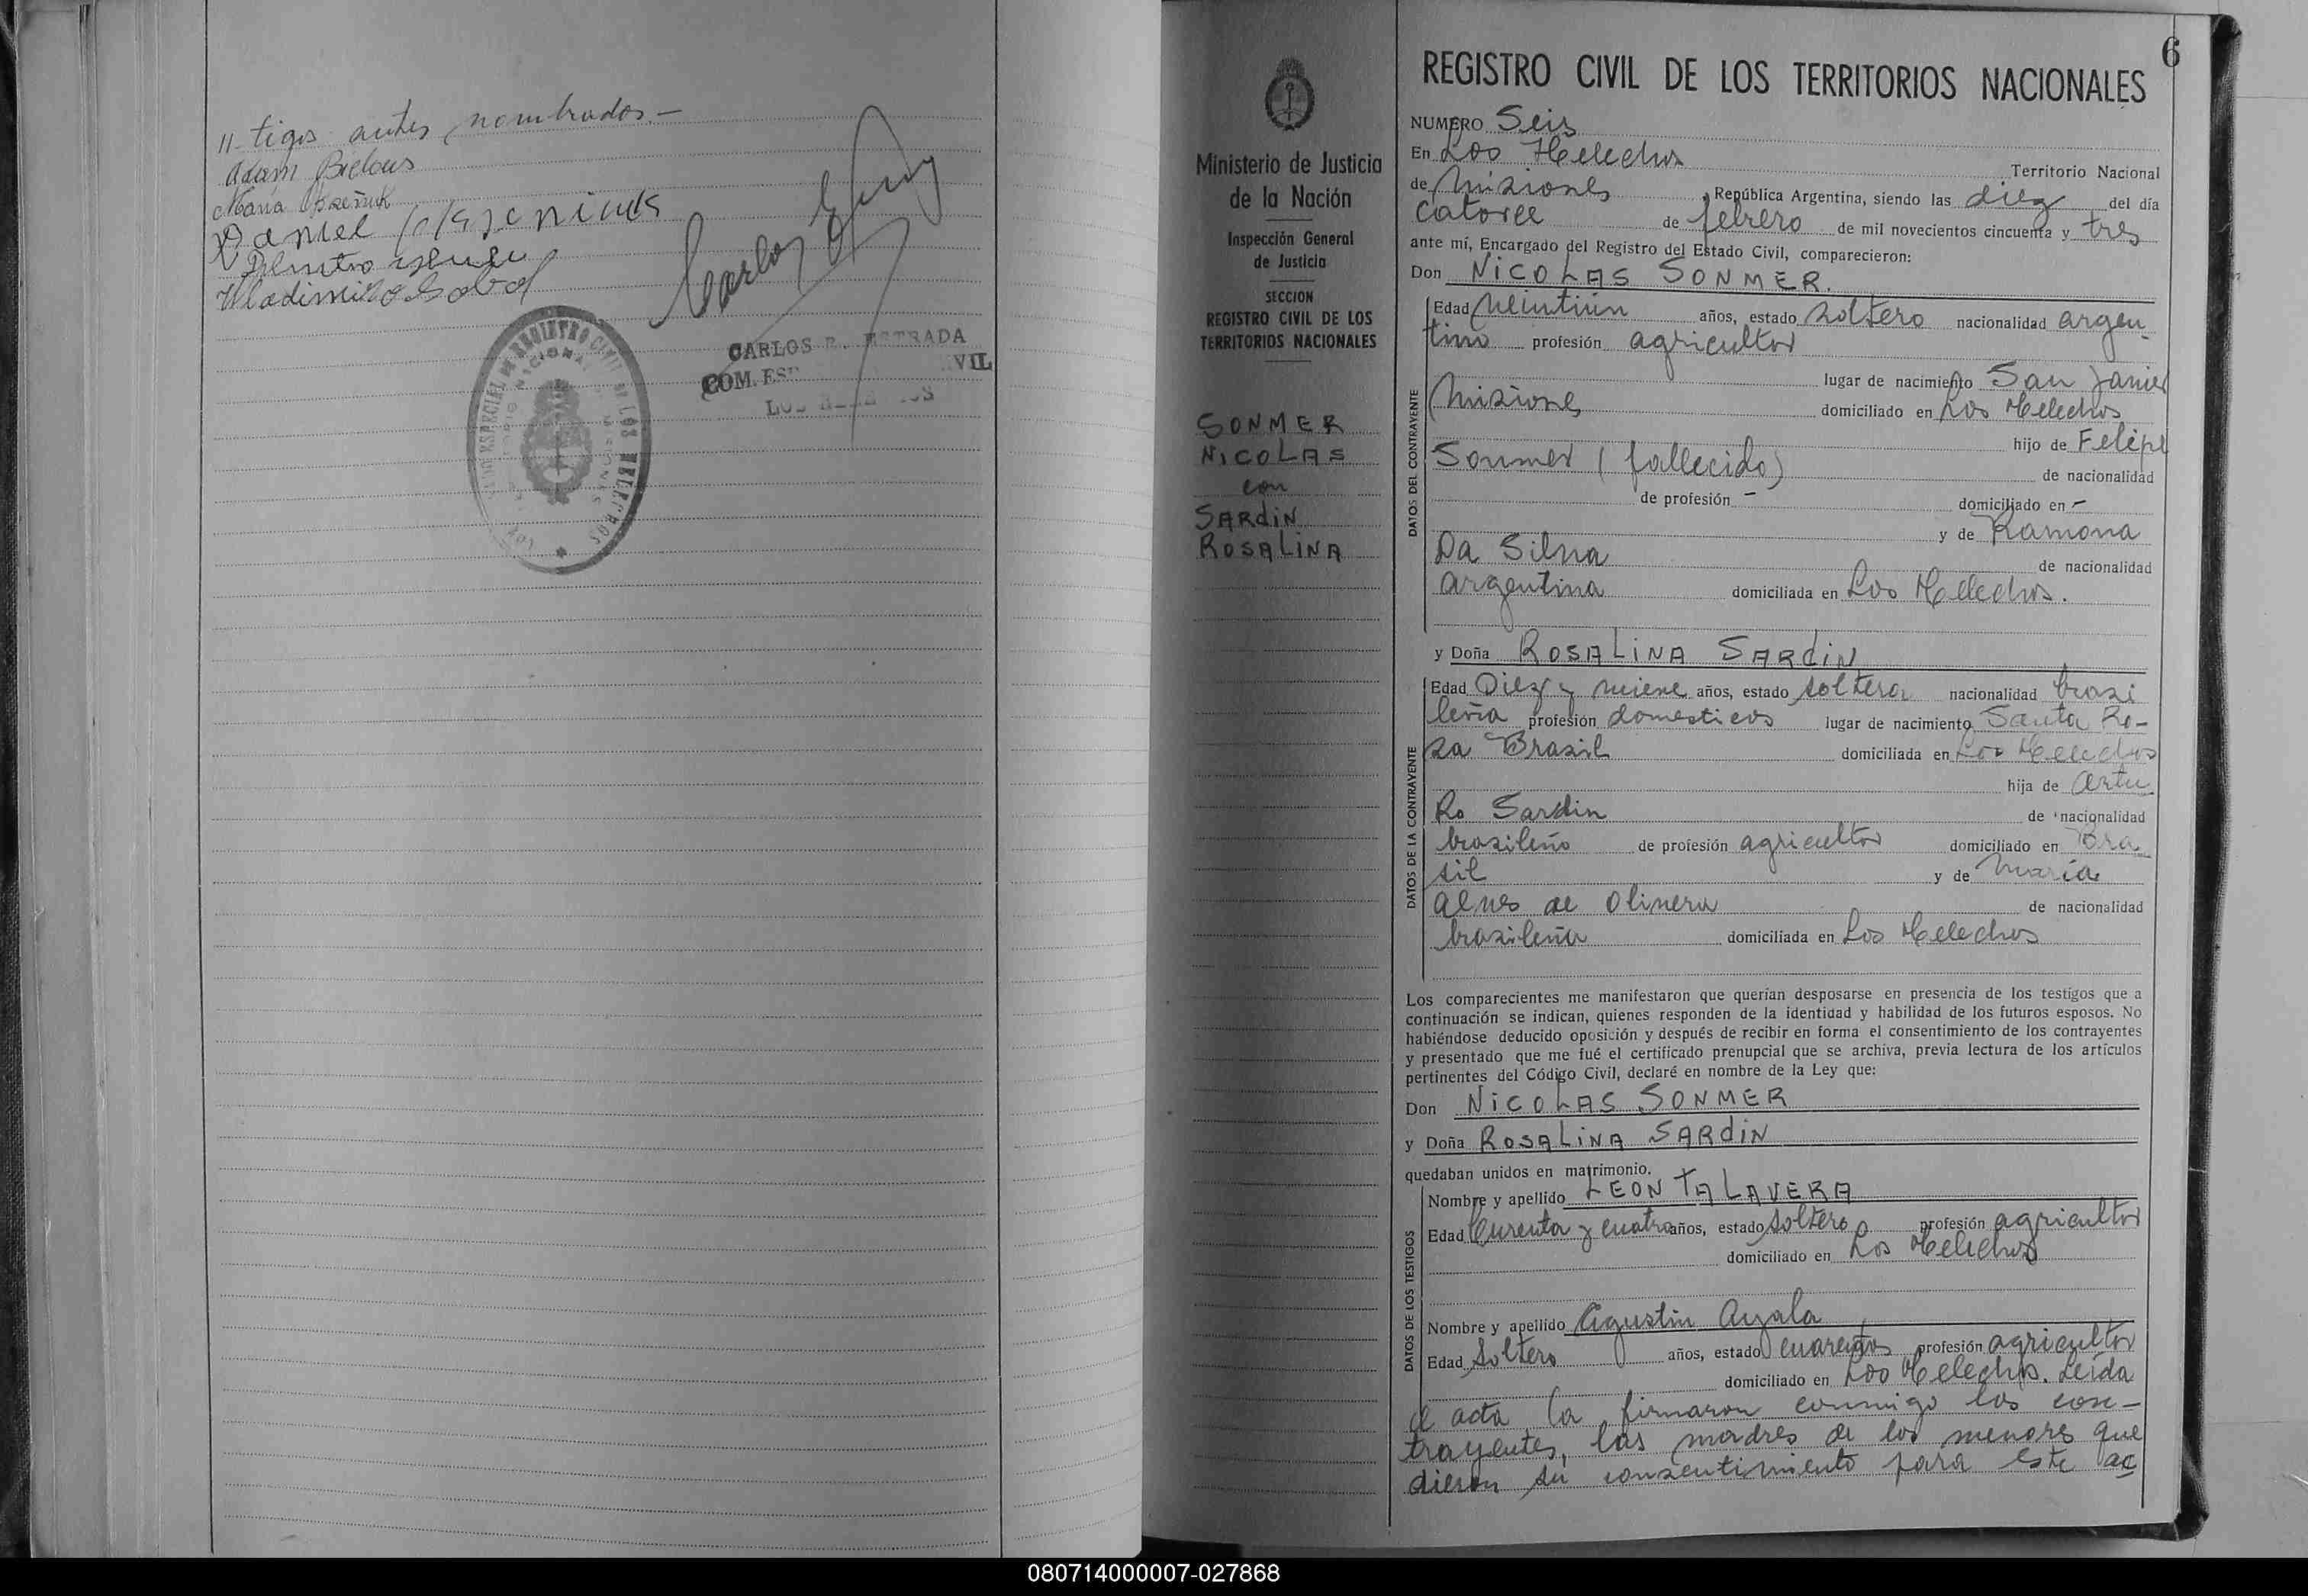 11- tigos antes nombrados.-
Adam Bielous
Maria
Daniel
Wladimiro
CARLOS R. ESTRADA
COM. ES
VIL
6
REGISTRO CIVIL DE LOS TERRITORIOS NACIONALES
Ministerio de Justicia
de la Nación
Inspección General
de Justicia
SECCION
REGISTRO CIVIL DE LOS
TERRITORIOS NACIONALES
SONMER
NICOLAS
con
SARdiN
ROSALINA
NUMERO Seis
En Los Helechos Territorio Nacional
de Misiones, República Argentina, siendo las diez del día
catorce de febrero de mil novecientos cincuenta y tres
ante mí, Encargado del Registro del Estado Civil, comparecieron:
Don NICOLAS SONMER.
DATOS DEL CONTRAYENTE
Edad Veintiún años, estado soltero nacionalidad argen-
tino profesión agricultor
lugar de nacimiento San Javier
Misiones domiciliado en Los Helechos
hijo de Felipe
Sonmer (fallecido) de nacionalidad
de profesión - domiciliado en -
y de Ramona
Da Silva de nacionalidad
argentina domiciliada en Los Helechos.
y Doña ROSALINA SARdiN
DATOS DE LA CONTRAYENTE
Edad Diez y nueve años, estado soltera nacionalidad brasi
leña profesión domesticos lugar de nacimiento Santa Ro-
sa Brasil domiciliada en Los Helechos
hija de Artu
Ro Sardin de nacionalidad
brasileño de profesión agricultor domiciliado en Bra
sil y de María
Alves de Olivera de nacionalidad
brasileña domiciliada en Los Helechos
Los comparecientes me manifestaron que querían desposarse en presencia de los testigos que a
continuación se indican, quienes responden de la identidad y habilidad de los futuros esposos. No
habiéndose deducido oposición y después de recibir en forma el consentimiento de los contrayentes
y presentado que me fué el certificado prenupcial que se archiva, previa lectura de los artículos
pertinentes del Código Civil, declaré en nombre de la Ley que:
Don NICOLAS SONMER
y Doña ROSALINA SARdiN
quedaban unidos en matrimonio.
DATOS DE LOS TESTIGOS
Nombre y apellido LEON TALAVERA
Edad Curenta y cuatro años, estado soltero profesión agricultor
domiciliado en Los Helechos
Nombre y apellido Agustin Ayala
Edad Soltero años, estado cuarenta profesión agricultor
domiciliado en Los Helechos. Leída
el acta la firmaron conmigo los con-
trayentes, las madres de los menores que
dieron su consentimiento para este ac
080714000007-027868